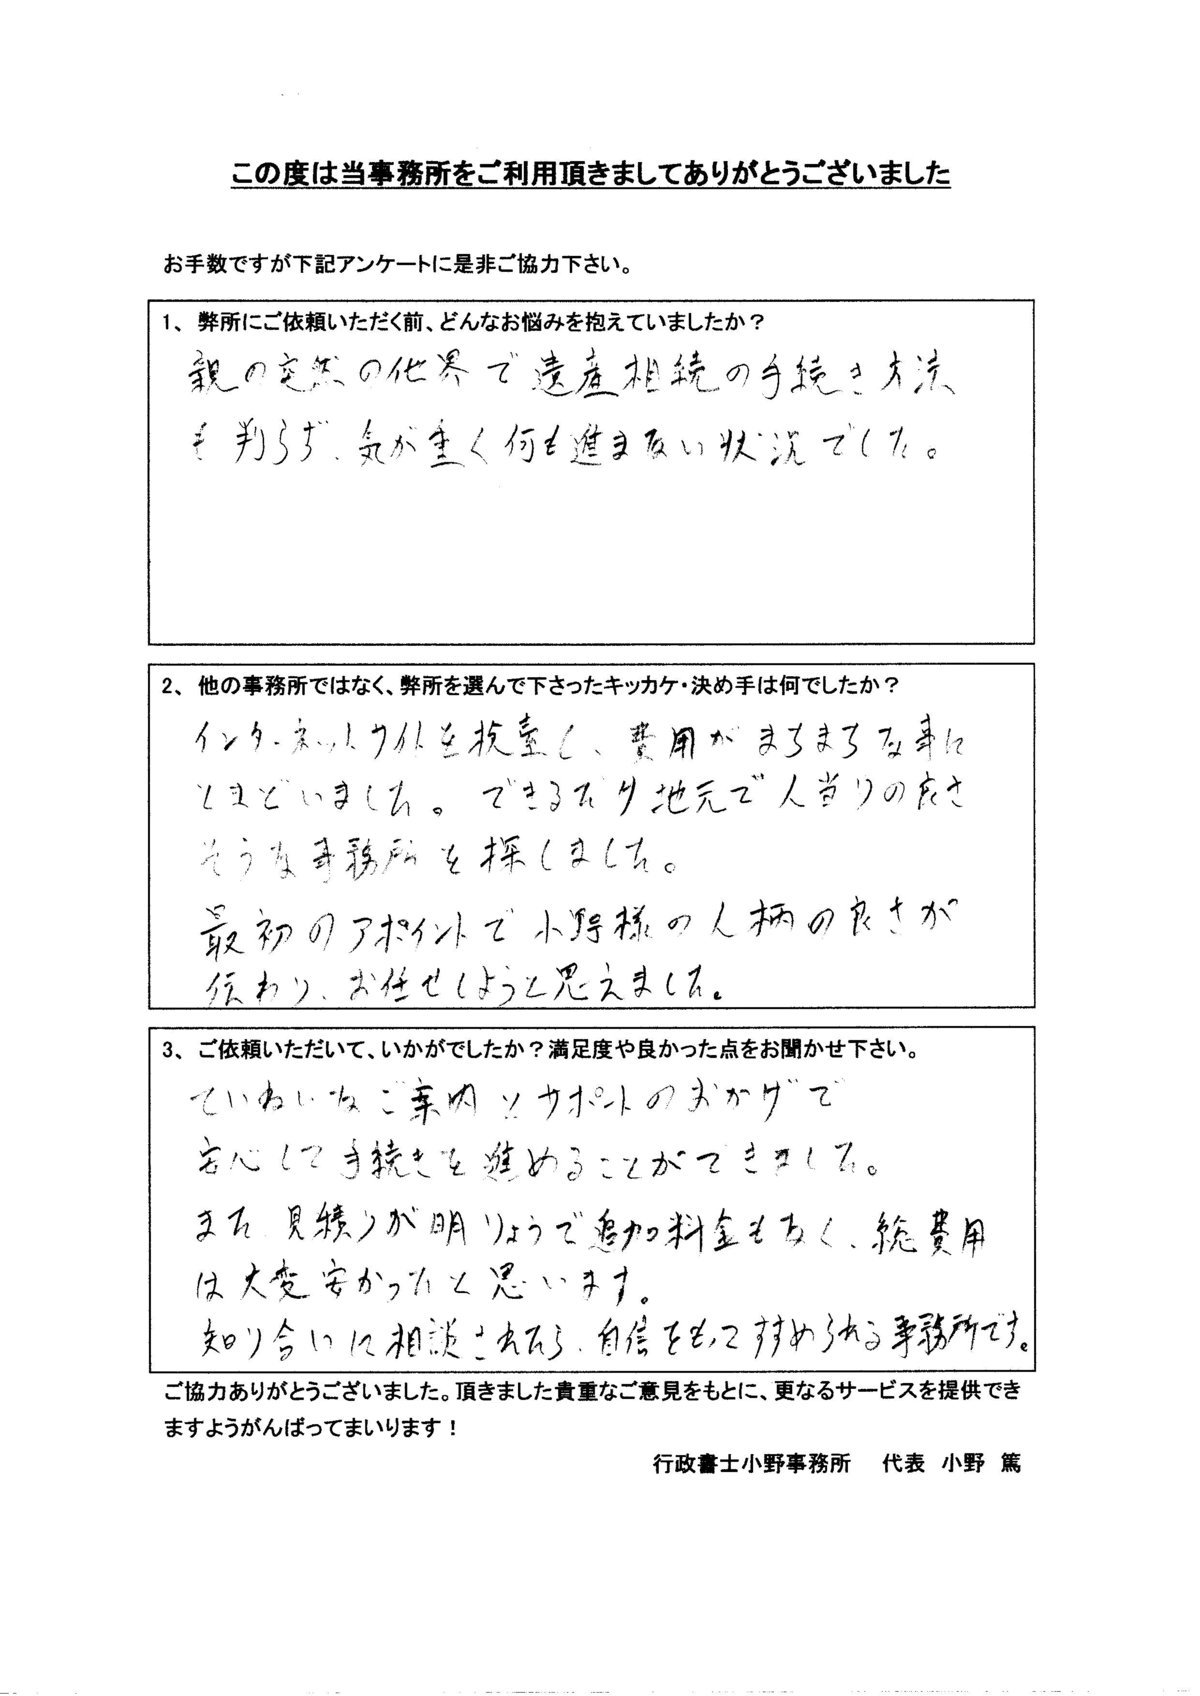 この度は当事務所をご利用頂きましてありがとうございました
お手数ですが下記アンケートに是非ご協力下さい。
1、弊所にご依頼いただく前、どんなお悩みを抱えていましたか？
親の突然の他界で遺産相続の手続き方法
も判らず、気が重く何も進まない状況でした。
2、他の事務所ではなく、弊所を選んで下さったキッカケ・決め手は何でしたか？
インターネットサイトを検索し、費用がまちまちな事に
とまどいました。できるだけ地元で人当りの良さ
そうな事務所を探しました。
最初のアポイントで小野様の人柄の良さが
伝わり、お任せしようと思えました。
3、ご依頼いただいて、いかがでしたか？満足度や良かった点をお聞かせ下さい。
ていねいなご案内とサポートのおかげで
安心して手続きを進めることができました。
また、見積りが明りょうで追加料金もなく、総費用
は大変安かったと思います。
知り合いに相談されたら、自信をもってすすめられる事務所です。
ご協力ありがとうございました。頂きました貴重なご意見をもとに、更なるサービスを提供でき
ますようがんばってまいります！
行政書士小野事務所　代表　小野　篤